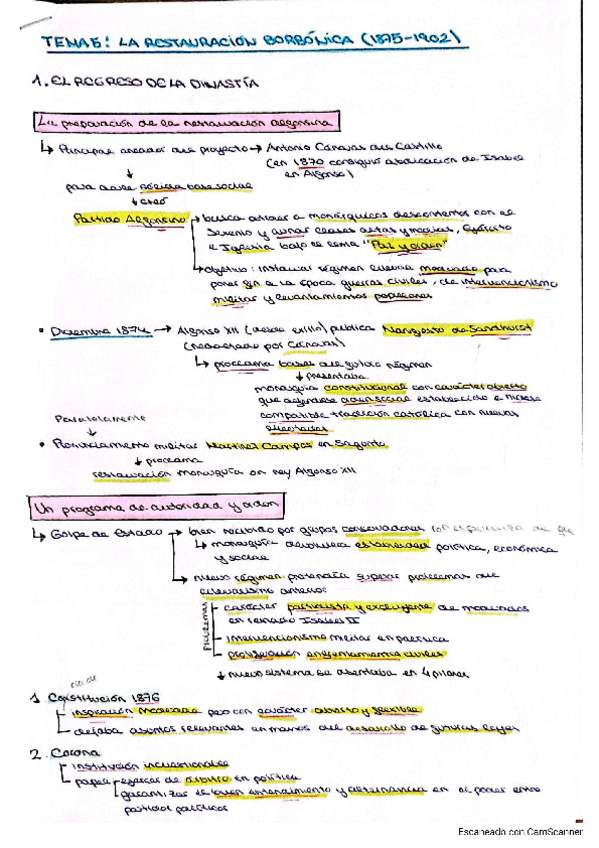 TEMA 5: LA RESTAURACIÓN BORBÓNICA (1875-1902)
1. EL REGRESO DE LA DINASTÍA
La preparación de la restauración alfonsina
↳ Principal creador del proyecto → Antonio Cánovas del Castillo
(en 1870 consiguió abdicación de Isabel
en Alfonso)
↓
para sólida base social
↓ creó
Partido Alfonsino → busca atraer a monárquicos descontentos con el
Sexenio y aunar clases altas y medias, Ejército
e Iglesia bajo el lema "Paz y orden"
↳ objetivo: instaurar régimen liberal moderado para
poner fin a la época guerras civiles, de intervencionismo
militar y levantamientos populares
• Diciembre 1874 → Alfonso XII (desde exilio) publica Manifiesto de Sandhurst
(redactado por Cánovas)
↳ proclama bases del futuro régimen
↓ presentaba
monarquía constitucional con carácter abierto
que defendiese orden social establecido e hiciese
compatible tradición católica con nuevas
libertades
Paralelamente
↓
• Pronunciamiento militar Martínez Campos en Sagunto
↓ proclama
restauración monarquía en rey Alfonso XII
Un programa de autoridad y orden
↳ Golpe de Estado → bien recibido por grupos conservadores con esperanza de que
↳ monarquía devolviera estabilidad política, económica
y social
↳ nuevo régimen pretendía superar problemas del
liberalismo anterior:
problemas
carácter partidista y excluyente de moderados
en reinado Isabel II
intervencionismo militar en política
proliferación enfrentamientos civiles
↓ nuevo sistema se asentaba en 4 pilares
1. Constitución 1876
inspiración moderada pero con carácter abierto y flexible
dejaba asuntos relevantes en manos del desarrollo de futuras leyes
2. Corona
institución incuestionable
papel ejercer de árbitro en política
garantizar el buen entendimiento y alternancia en el poder entre
partidos políticos
Escaneado con CamScanner